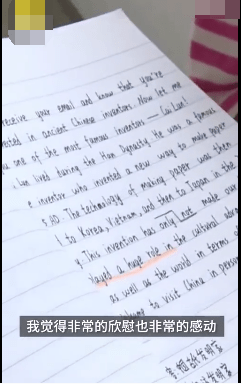 receive your email and know that you're
rested in ancient Chinese inventors. Now let me
u one of the most famous inventors — Cai Lun!
Lun lived during the Han Dynasty. He was a famous
e inventor who invented a new way to make paper
5 AD. The technology of making paper was then
l to Korea, Vietnam, and then to Japan in the
not made our
y. This invention has only
played a huge role in the cultural
as well as the world in terms of
to visit China in person
我觉得非常的欣慰也非常的感动